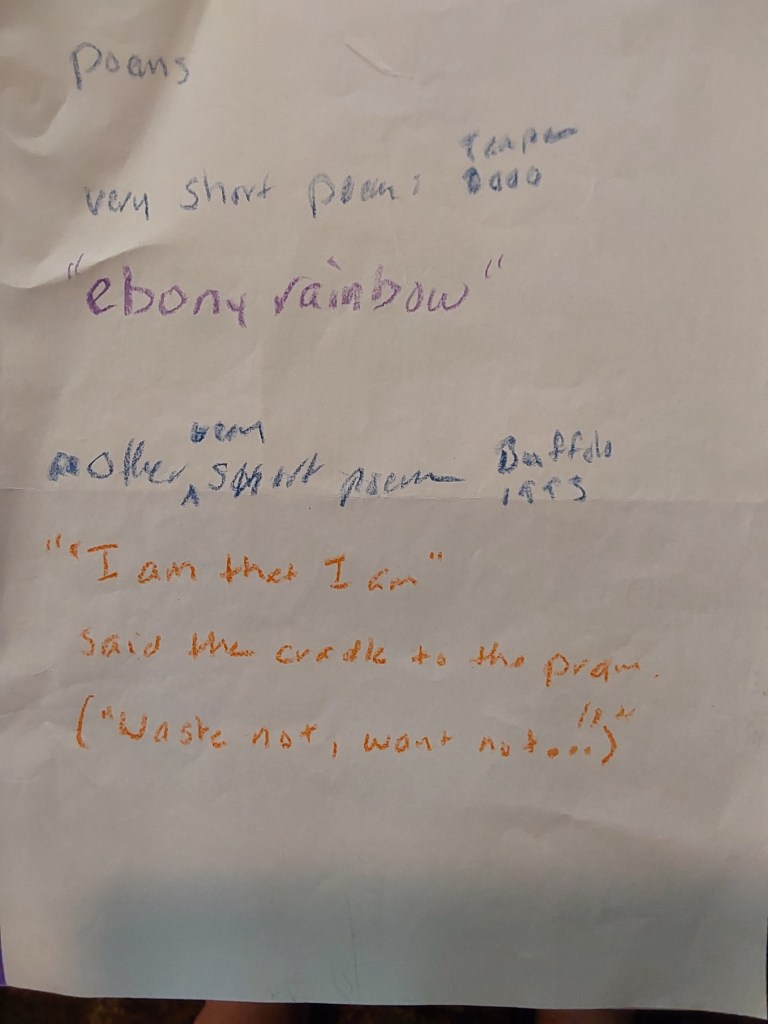 poems
Tampa
very short poem:
"ebony rainbow"
very
another ^ short poem Buffalo
1993
"“I am that I am"
said the cradle to the pram.
("Waste not, want not...")"